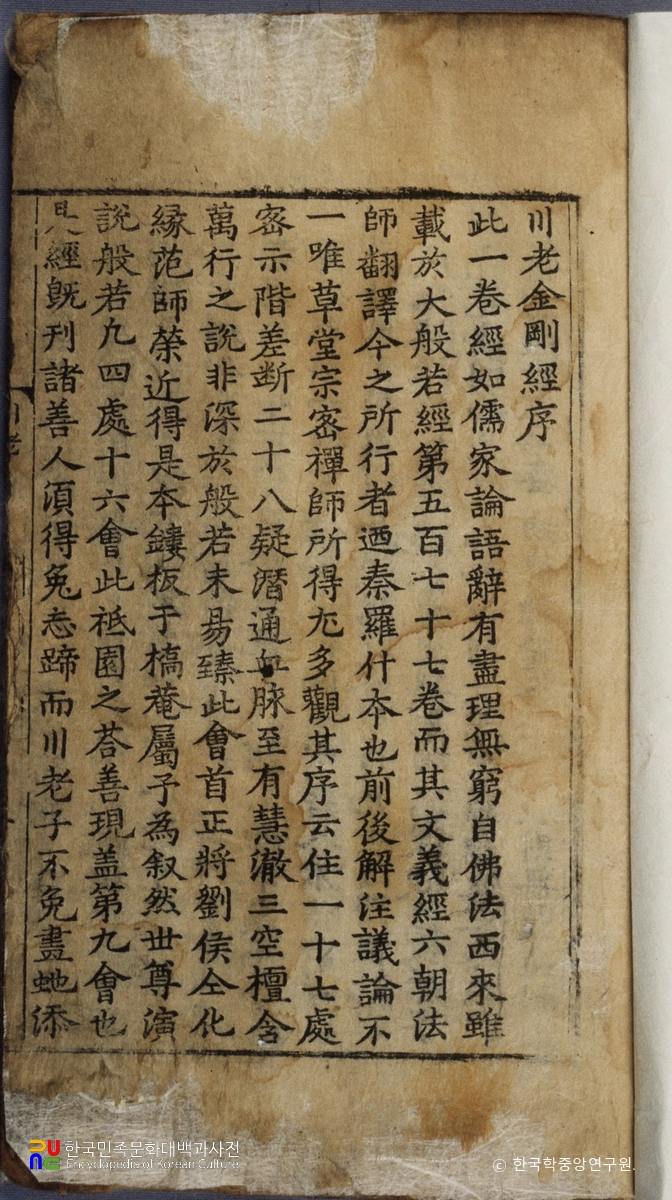 川老金剛經序
此一卷經如儒家論語辭有盡理無窮自佛法西來雖
載於大般若經第五百七十七卷而其文義經六朝法
師翻譯今之所行者迺秦羅什本也前後解注議論不
一唯草堂宗密禪師所得尤多觀其序云住一十七處
密示階差断二十八疑潛通血脉至有慧澈三空檀含
萬行之說非深於般若未易臻此會首正將劉侯仝化
緣范師榮近得是本鏤板于槁菴屬予為叙然丗尊演
說般若凢四處十六會此祗園之荅善現盖第九會也
經旣刊諸善人湏得兔忘蹄而川老子不免畫虵添
川老
한국민족문화대백과사전
Encyclopedia of Korean Culture
© 한국학중앙연구원.